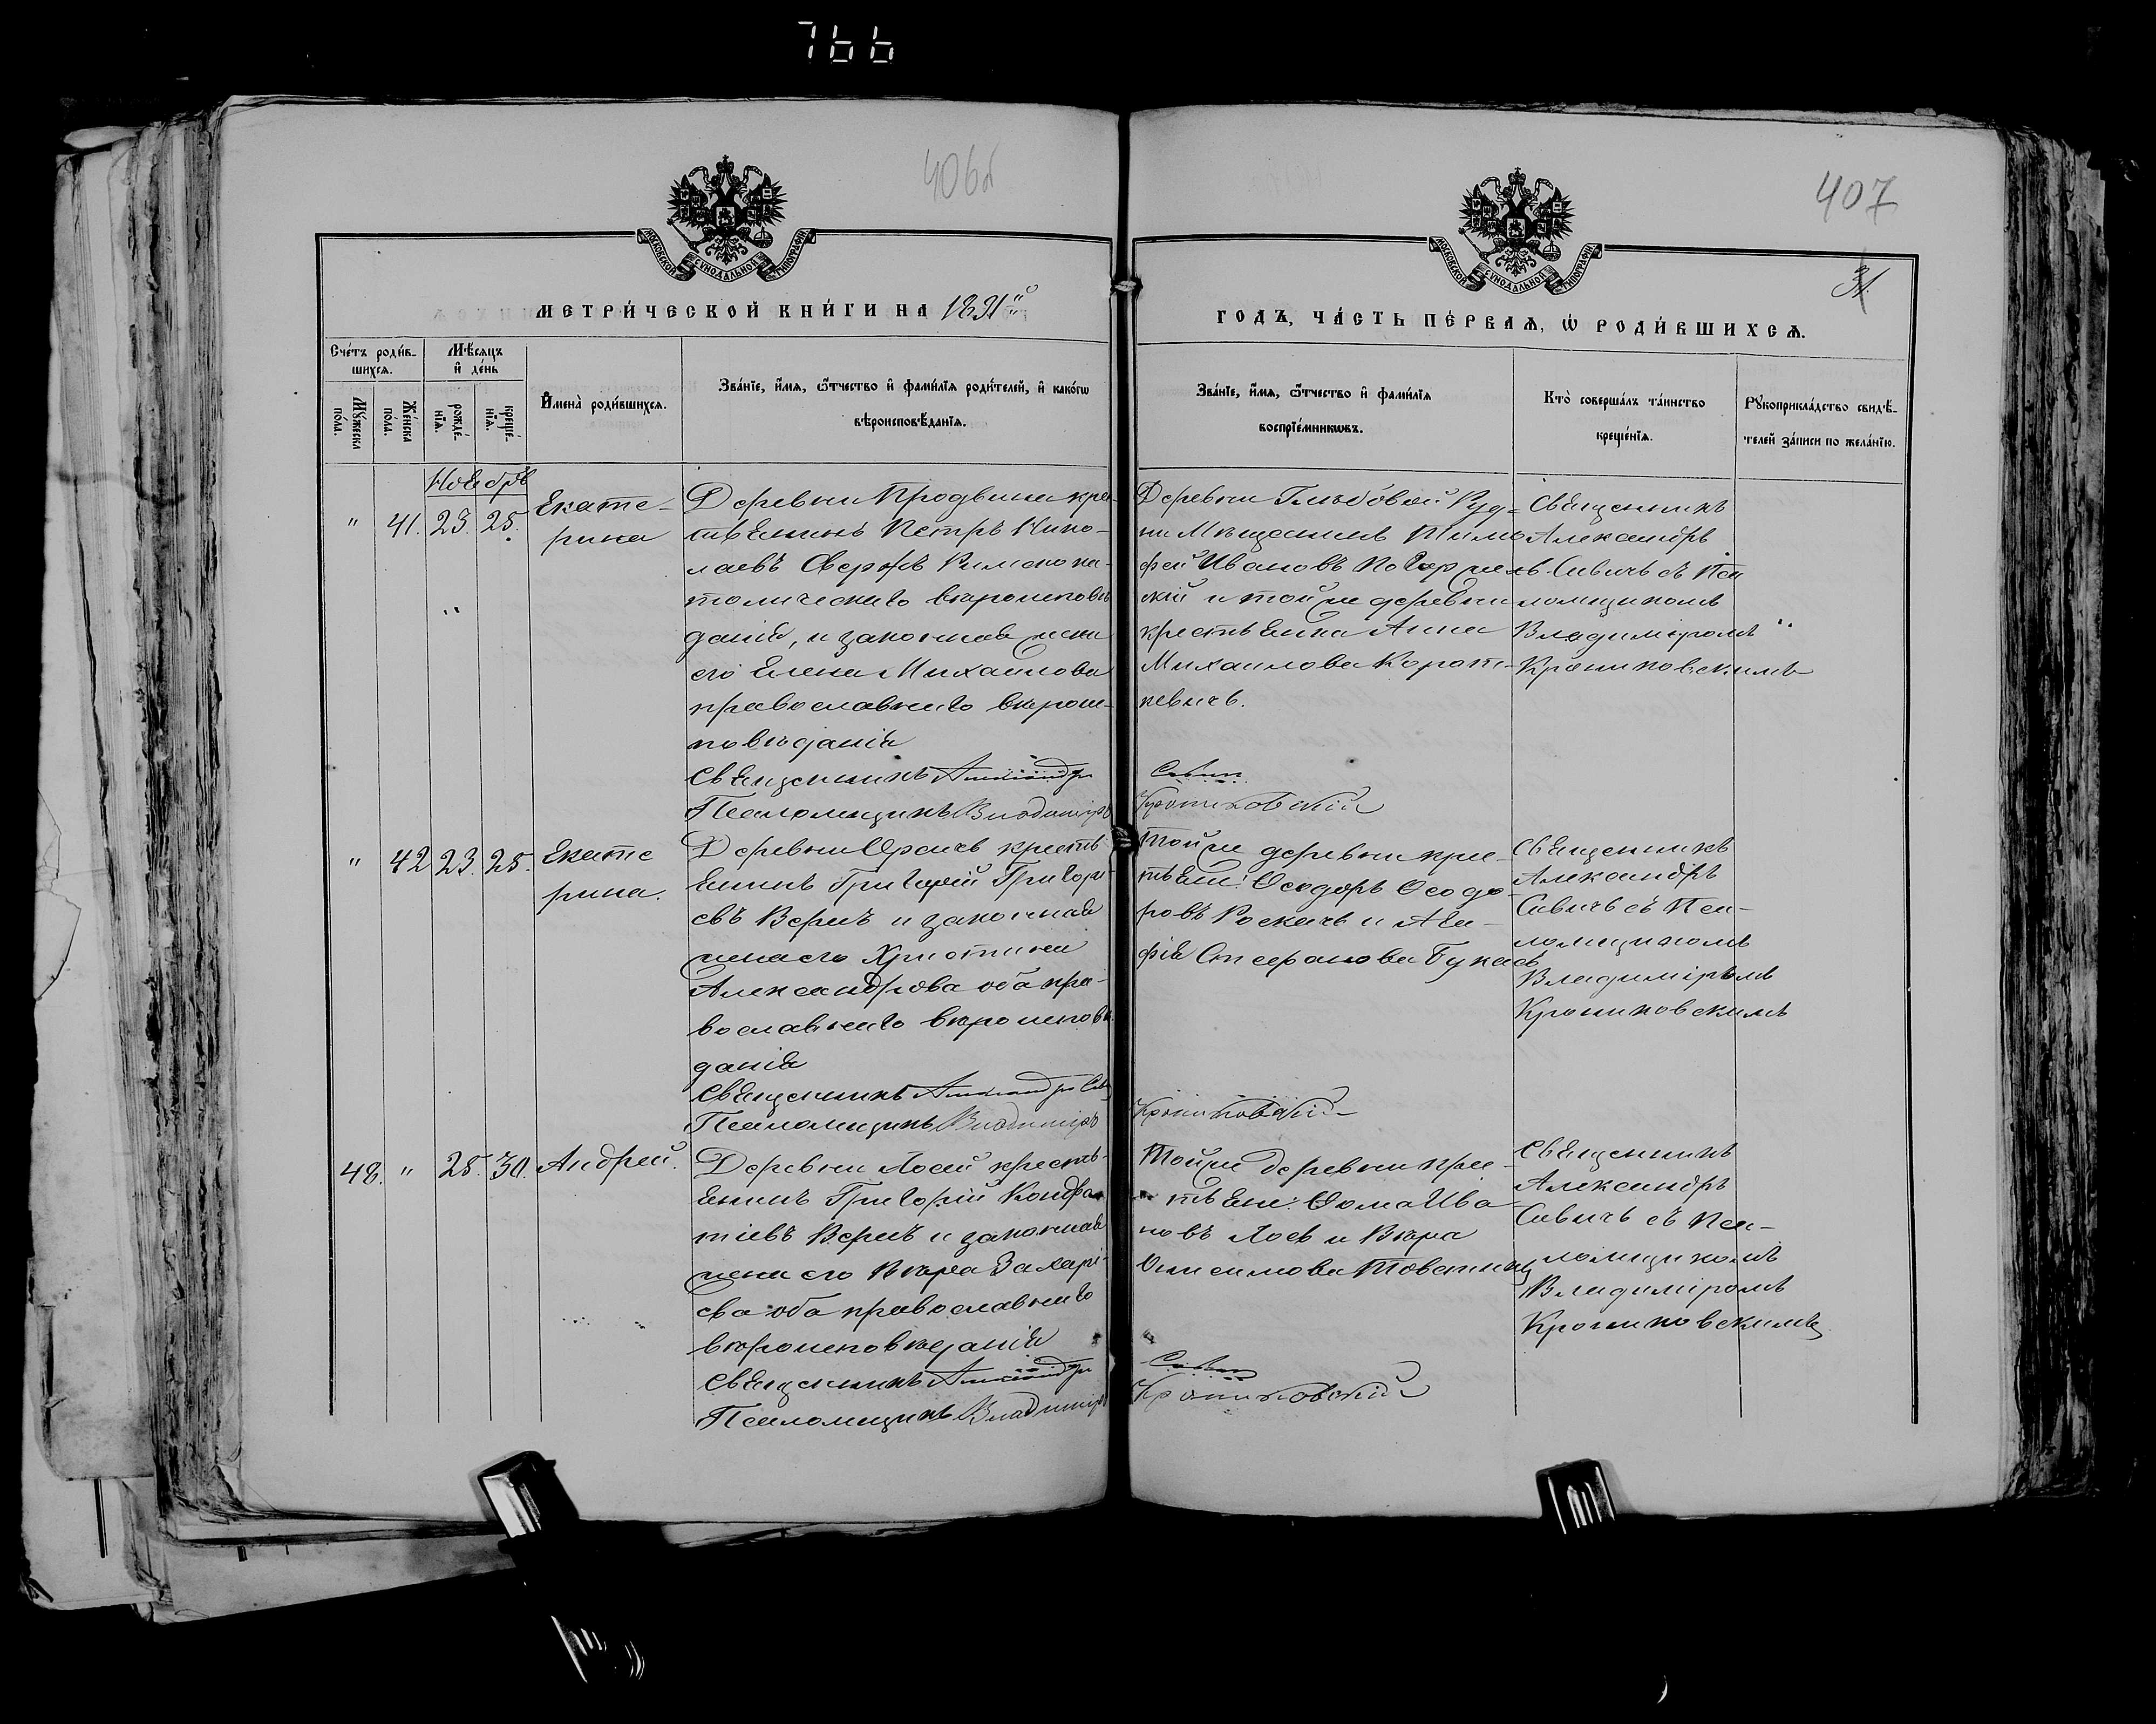 766
406б
407
31.
МОСКОВСКОЙ СѴНОДАЛЬНОЙ ТИПОГРАФІИ
МОСКОВСКОЙ СѴНОДАЛЬНОЙ ТИПОГРАФІИ
МЕТРИ́ЧЕСКОЙ КНИ́ГИ НА 1891й
ГОДЪ, ЧА́СТЬ ПЕ́РВАѦ, Ѡ҆ РОДИ́ВШИХСѦ.
Сче́тъ роди́в-
шихсѧ.
Мꙋ́жеска по́ла.
Же́нска по́ла.
Мѣ́сѧцъ и҆ де́нь
рожде́-
нїѧ.
креще́-
нїѧ.
И҆мена̀ роди́вшихсѧ.
Зва́нїе, и҆́мѧ, ѻ҆́тчество и҆ фами́лїѧ роди́телей, и҆ како́гѡ
вѣроисповѣ́данїѧ.
Зва́нїе, и҆́мѧ, ѻ҆́тчество и҆ фами́лїѧ
воспрїе́мникѡвъ.
Кто̀ соверша́лъ та́инство
креще́нїѧ.
Рꙋкоприкла́дство свидѣ́-
телей за́писи по жела́нїю.
Ноябрь
" 41. 23. 25.
Екате-
рина
Деревни Продвина кре-
стьянинъ Петръ Нико-
лаевъ Свержъ Римскока-
толическаго вѣроисповѣ
данія, и законная жена
его Елена Михаилова
православнаго вѣроис-
повѣданія
Священникъ Александръ
Псаломщикъ Владиміръ
Деревни Глыбовой Руд-
ни Мѣщанинъ Тимо
фей Ивановъ
скій и той же деревни
крестьянка Анна
Михаилова Корот-
кевичъ.
Савич
Крониковскій
Священникъ
Александръ
Савичъ съ Пса
ломщикомъ
Владиміромъ "
Крониковскимъ
" 42 23. 25.
Екате
рина.
Деревни крестья
янинъ Григорій Григорі-
евъ Вержъ и законная
жена его Христина
Александрова оба пра-
вославнаго вѣроисповѣ
данія
Священникъ Александръ Сав
Псаломщикъ Владиміръ
Той же деревни кре-
стьян: Ѳеодоръ Ѳеодо-
ровъ Роскачъ и Ага-
фія
Крониковскій
Священникъ
Александръ
Савичъ съ Пса-
ломщикомъ
Владиміромъ
Крониковскимъ
48. " 25. 30. Андрей.
Деревни Лоей кресть-
янинъ Григорій Кондра-
тіевъ Вержъ и законная
жена его Вѣра Захарі-
ева оба православнаго
вѣроисповѣданія
Священникъ Александръ
Псаломщикъ Владиміръ
Той же деревни кре-
стьян: Ѳома Ива-
новъ Лоев и Вѣра
Онисимова
Савич
Крониковскій
Священникъ
Александръ
Савичъ съ Пса-
ломщикомъ
Владиміромъ
Крониковскимъ